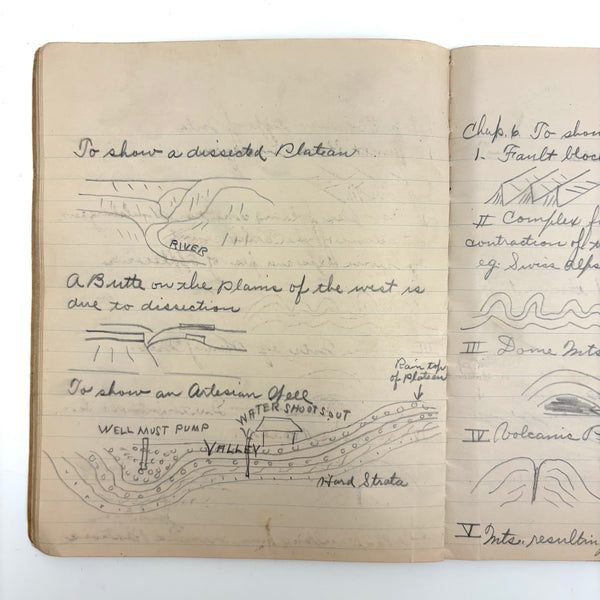 To show a dissected Plateau
RIVER
A Butte on the plains of the west is
due to dissection
To show an Artesian Well
Rain top
of Plateau
WATER SHOOTS OUT
WELL MUST PUMP
VALLEY
Hard Strata
Chap. 6. To show
1. Fault bloc
II Complex f
contraction of t
eg. Swiss Alps
III Dome Mts
IV Volcanic P
V Mts. resulting